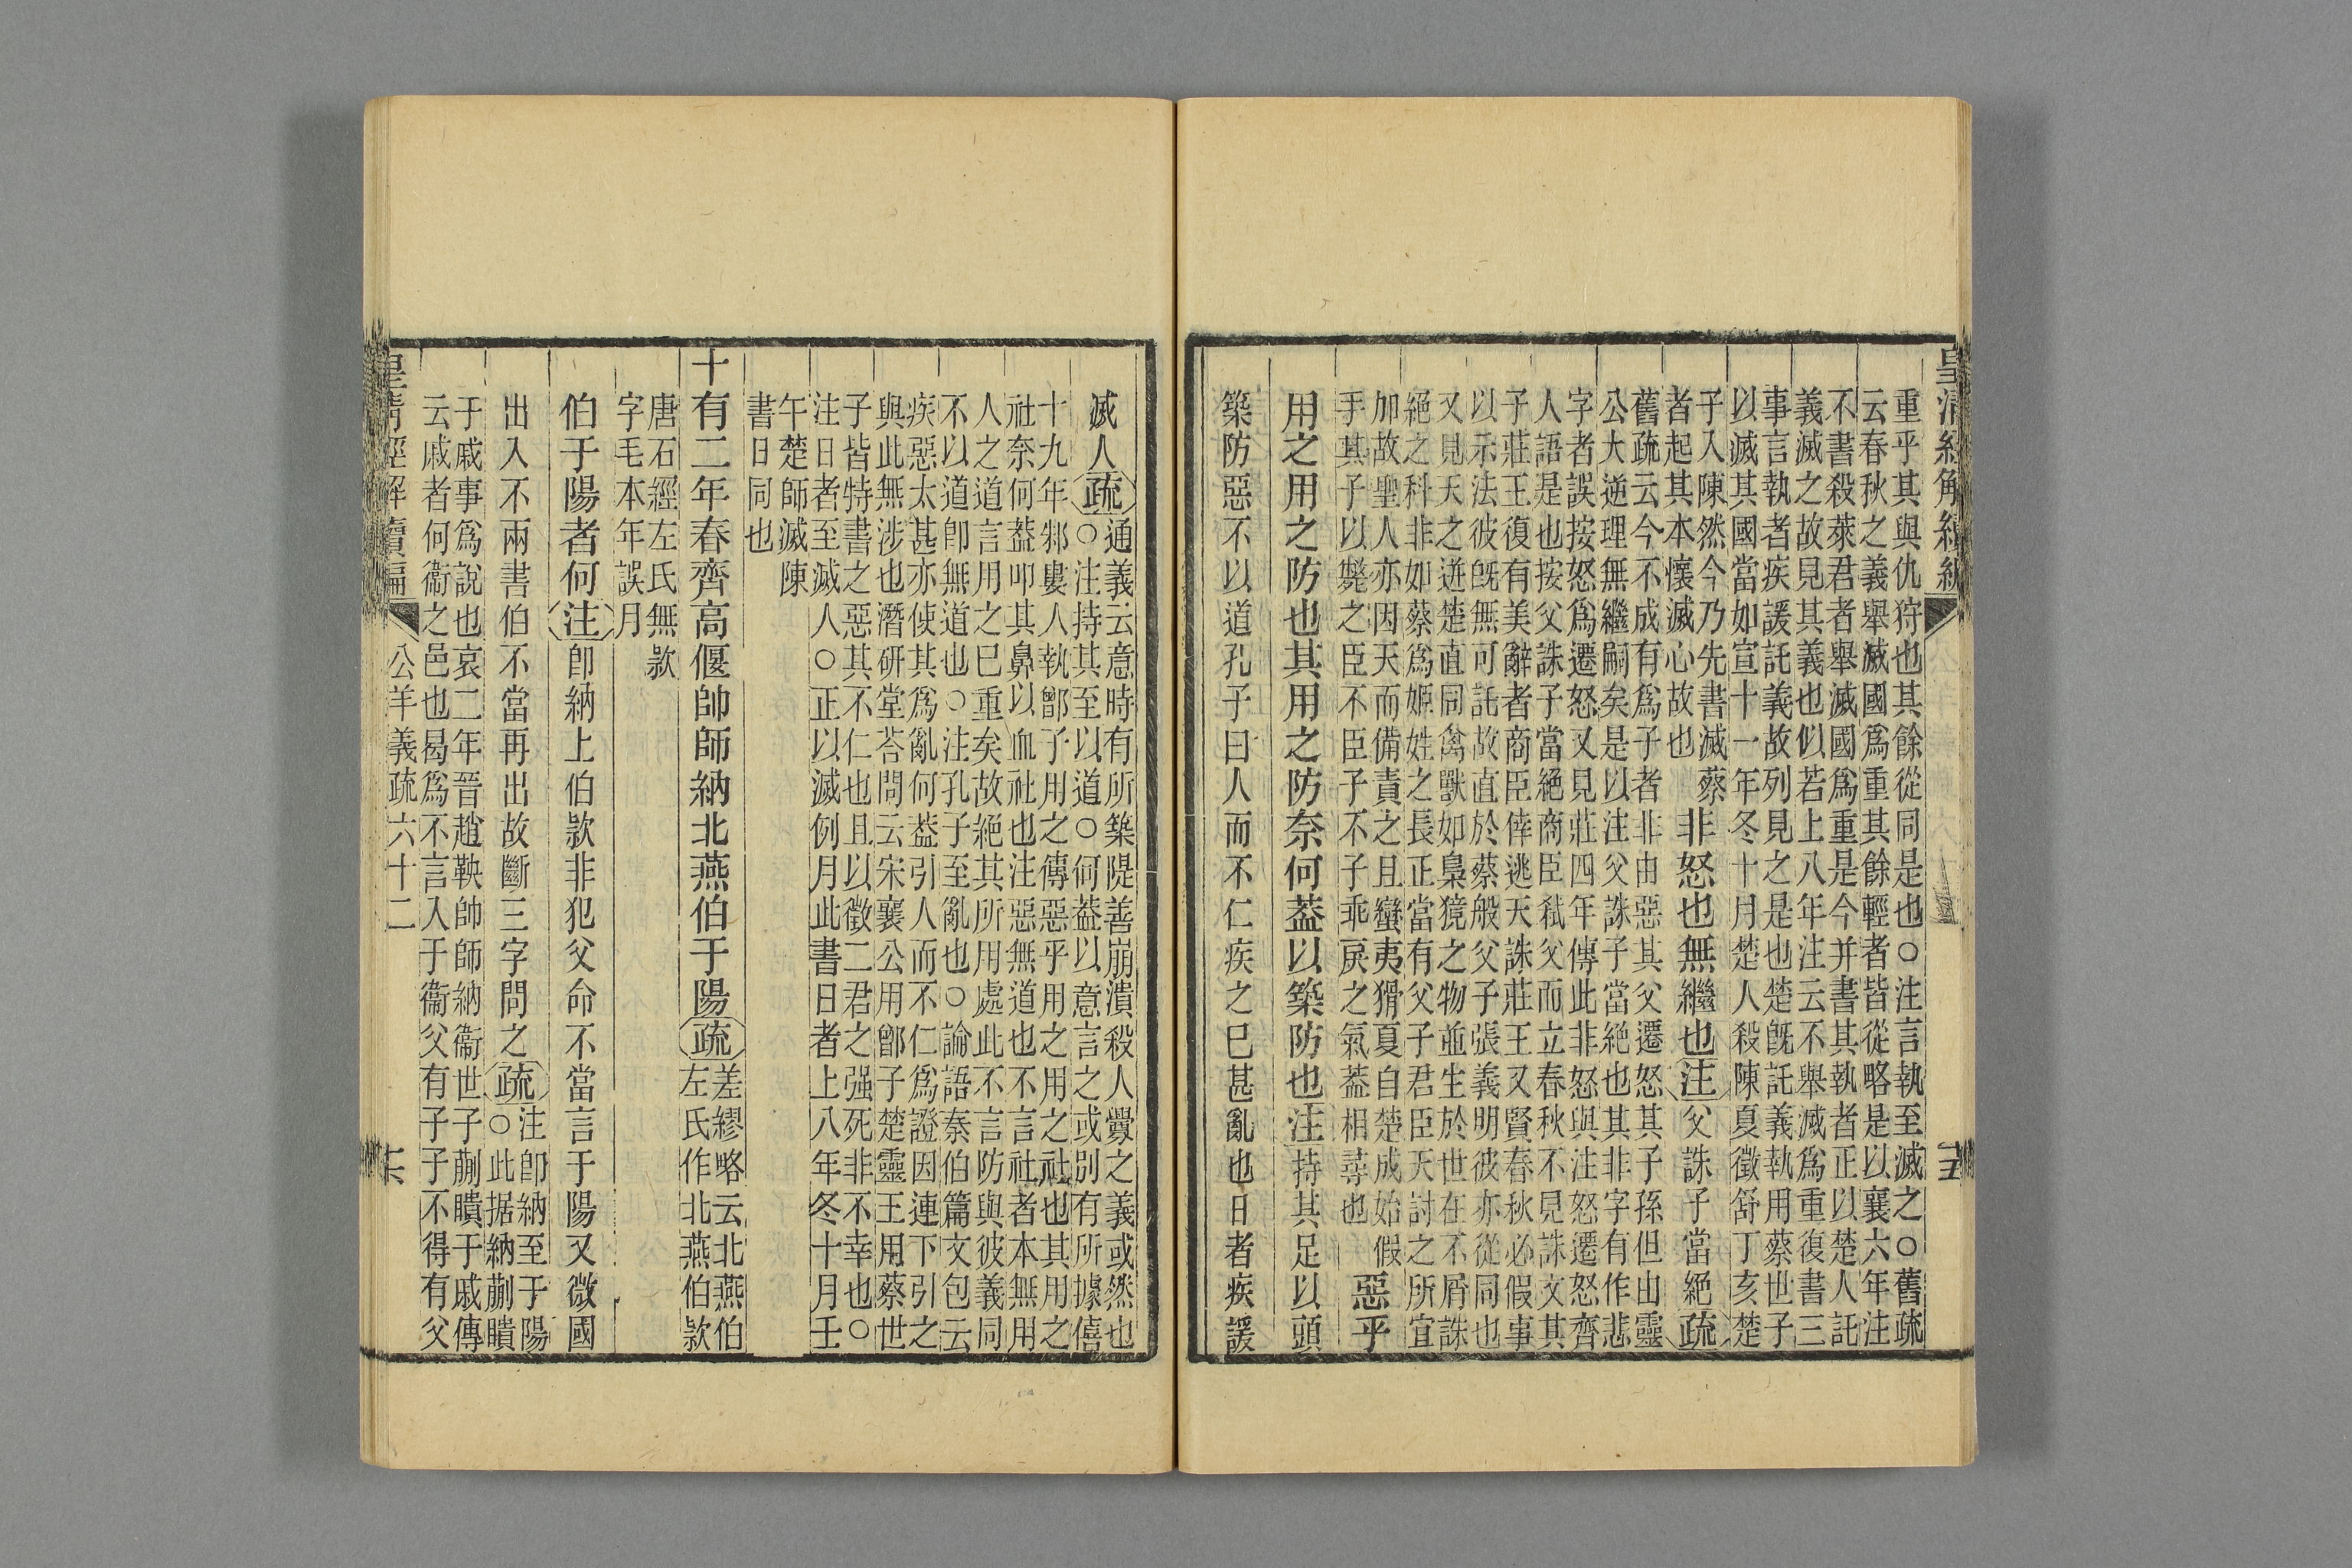 皇清經解續編
重乎其與仇狩也其餘從同是也○注言執至滅之○舊疏
云春秋之義舉滅國爲重其餘輕者皆從略是以襄六年注
不書殺萊君者舉滅國爲重是今并書其執者正以楚人託
義滅之故見其義也似若上八年注云不舉滅爲重復書三
事言執者疾諼託義故列見之是也楚旣託義執用蔡世子
以滅其國當如宣十一年冬十月楚人殺陳夏徵舒丁亥楚
子入陳然今乃先書滅蔡
者起其本懷滅心故也
非怒也無繼也注父誅子當絕疏
舊疏云今不成有爲子者非由惡其父遷怒其子孫但由靈
公大逆理無繼嗣矣是以注父誅子當絕也其非字有作悲
字者誤按怒爲遷怒又見莊四年傳此非怒與注怒遷怒齊
人語是也按父誅子當絕商臣弒父而立春秋不見誅文其
子莊王復有美辭者商臣倖逃天誅莊王又賢春秋必假事
以示法彼旣無可託故直於蔡般父子張義明彼亦從同也
又見天之迸楚直同禽獸如梟獍之物並生於世在不屑誅
絕之科非如蔡爲姬姓之長正當有父子君臣天討之所宜
加故聖人亦因天而備責之且蠻夷猾夏自楚成始假
手其子以斃之臣不臣子不子乖戾之氣葢相尋也
惡乎
用之用之防也其用之防奈何葢以築防也注持其足以頭
築防惡不以道孔子曰人而不仁疾之已甚亂也日者疾諼
滅人疏
通義云意時有所築隄善崩潰殺人釁之義或然也
○注持其至以道○何葢以意言之或別有所據僖
十九年邾婁人執鄫子用之傳惡乎用之用之社也其用之
社奈何葢叩其鼻以血社也注惡無道也不言社者本無用
人之道言用之已重矣故絕其所用處此不言防與彼義同
不以道卽無道也○注孔子至亂也○論語泰伯篇文包云
疾惡太甚亦使其爲亂何葢引人而不仁爲證因連下引之
與此無涉也潛研堂荅問云宋襄公用鄫子楚靈王用蔡世
子皆特書之惡其不仁也且以徵二君之强死非不幸也○
注日者至滅人○正以滅例月此書日者上八年冬十月壬
午楚師滅陳
書日同也
十有二年春齊高偃帥師納北燕伯于陽疏
差繆略云北燕伯
左氏作北燕伯款
唐石經左氏無款
字毛本年誤月
伯于陽者何注卽納上伯款非犯父命不當言于陽又微國
出入不兩書伯不當再出故斷三字問之疏
注卽納至于陽
○此据納蒯聵
于戚事爲說也哀二年晉趙鞅帥師納衞世子蒯聵于戚傳
云戚者何衞之邑也曷爲不言入于衞父有子子不得有父
皇清經解續編
公羊義疏六十二